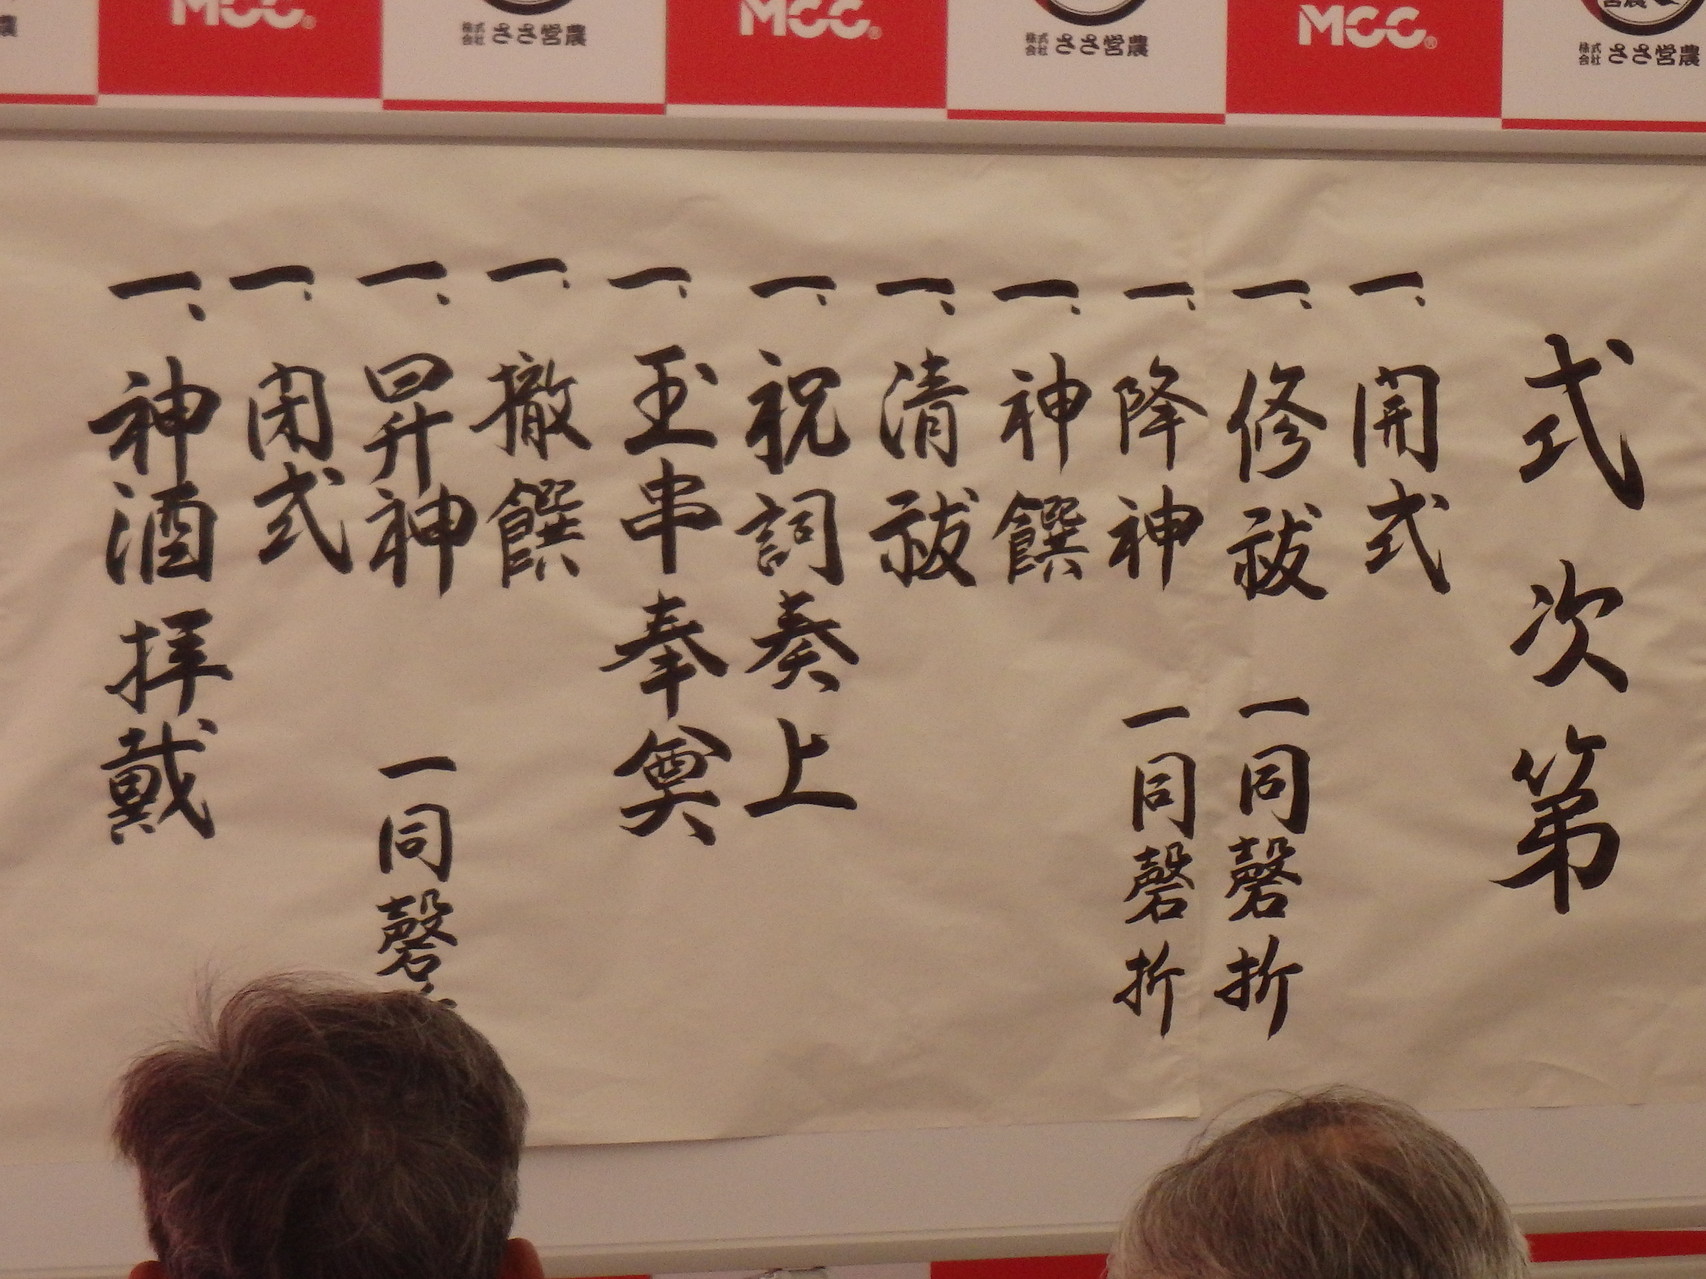 MCC®
株式会社 ささ営農
MCC®
株式会社 ささ営農
MCC®
株式会社 ささ営農
式次第
一、開式
一、修祓 一同磬折
一、降神 一同磬折
一、神饌
一、清祓
一、祝詞奏上
一、玉串奉奠
一、撤饌
一、昇神 一同磬
一、閉式
一、神酒拝戴